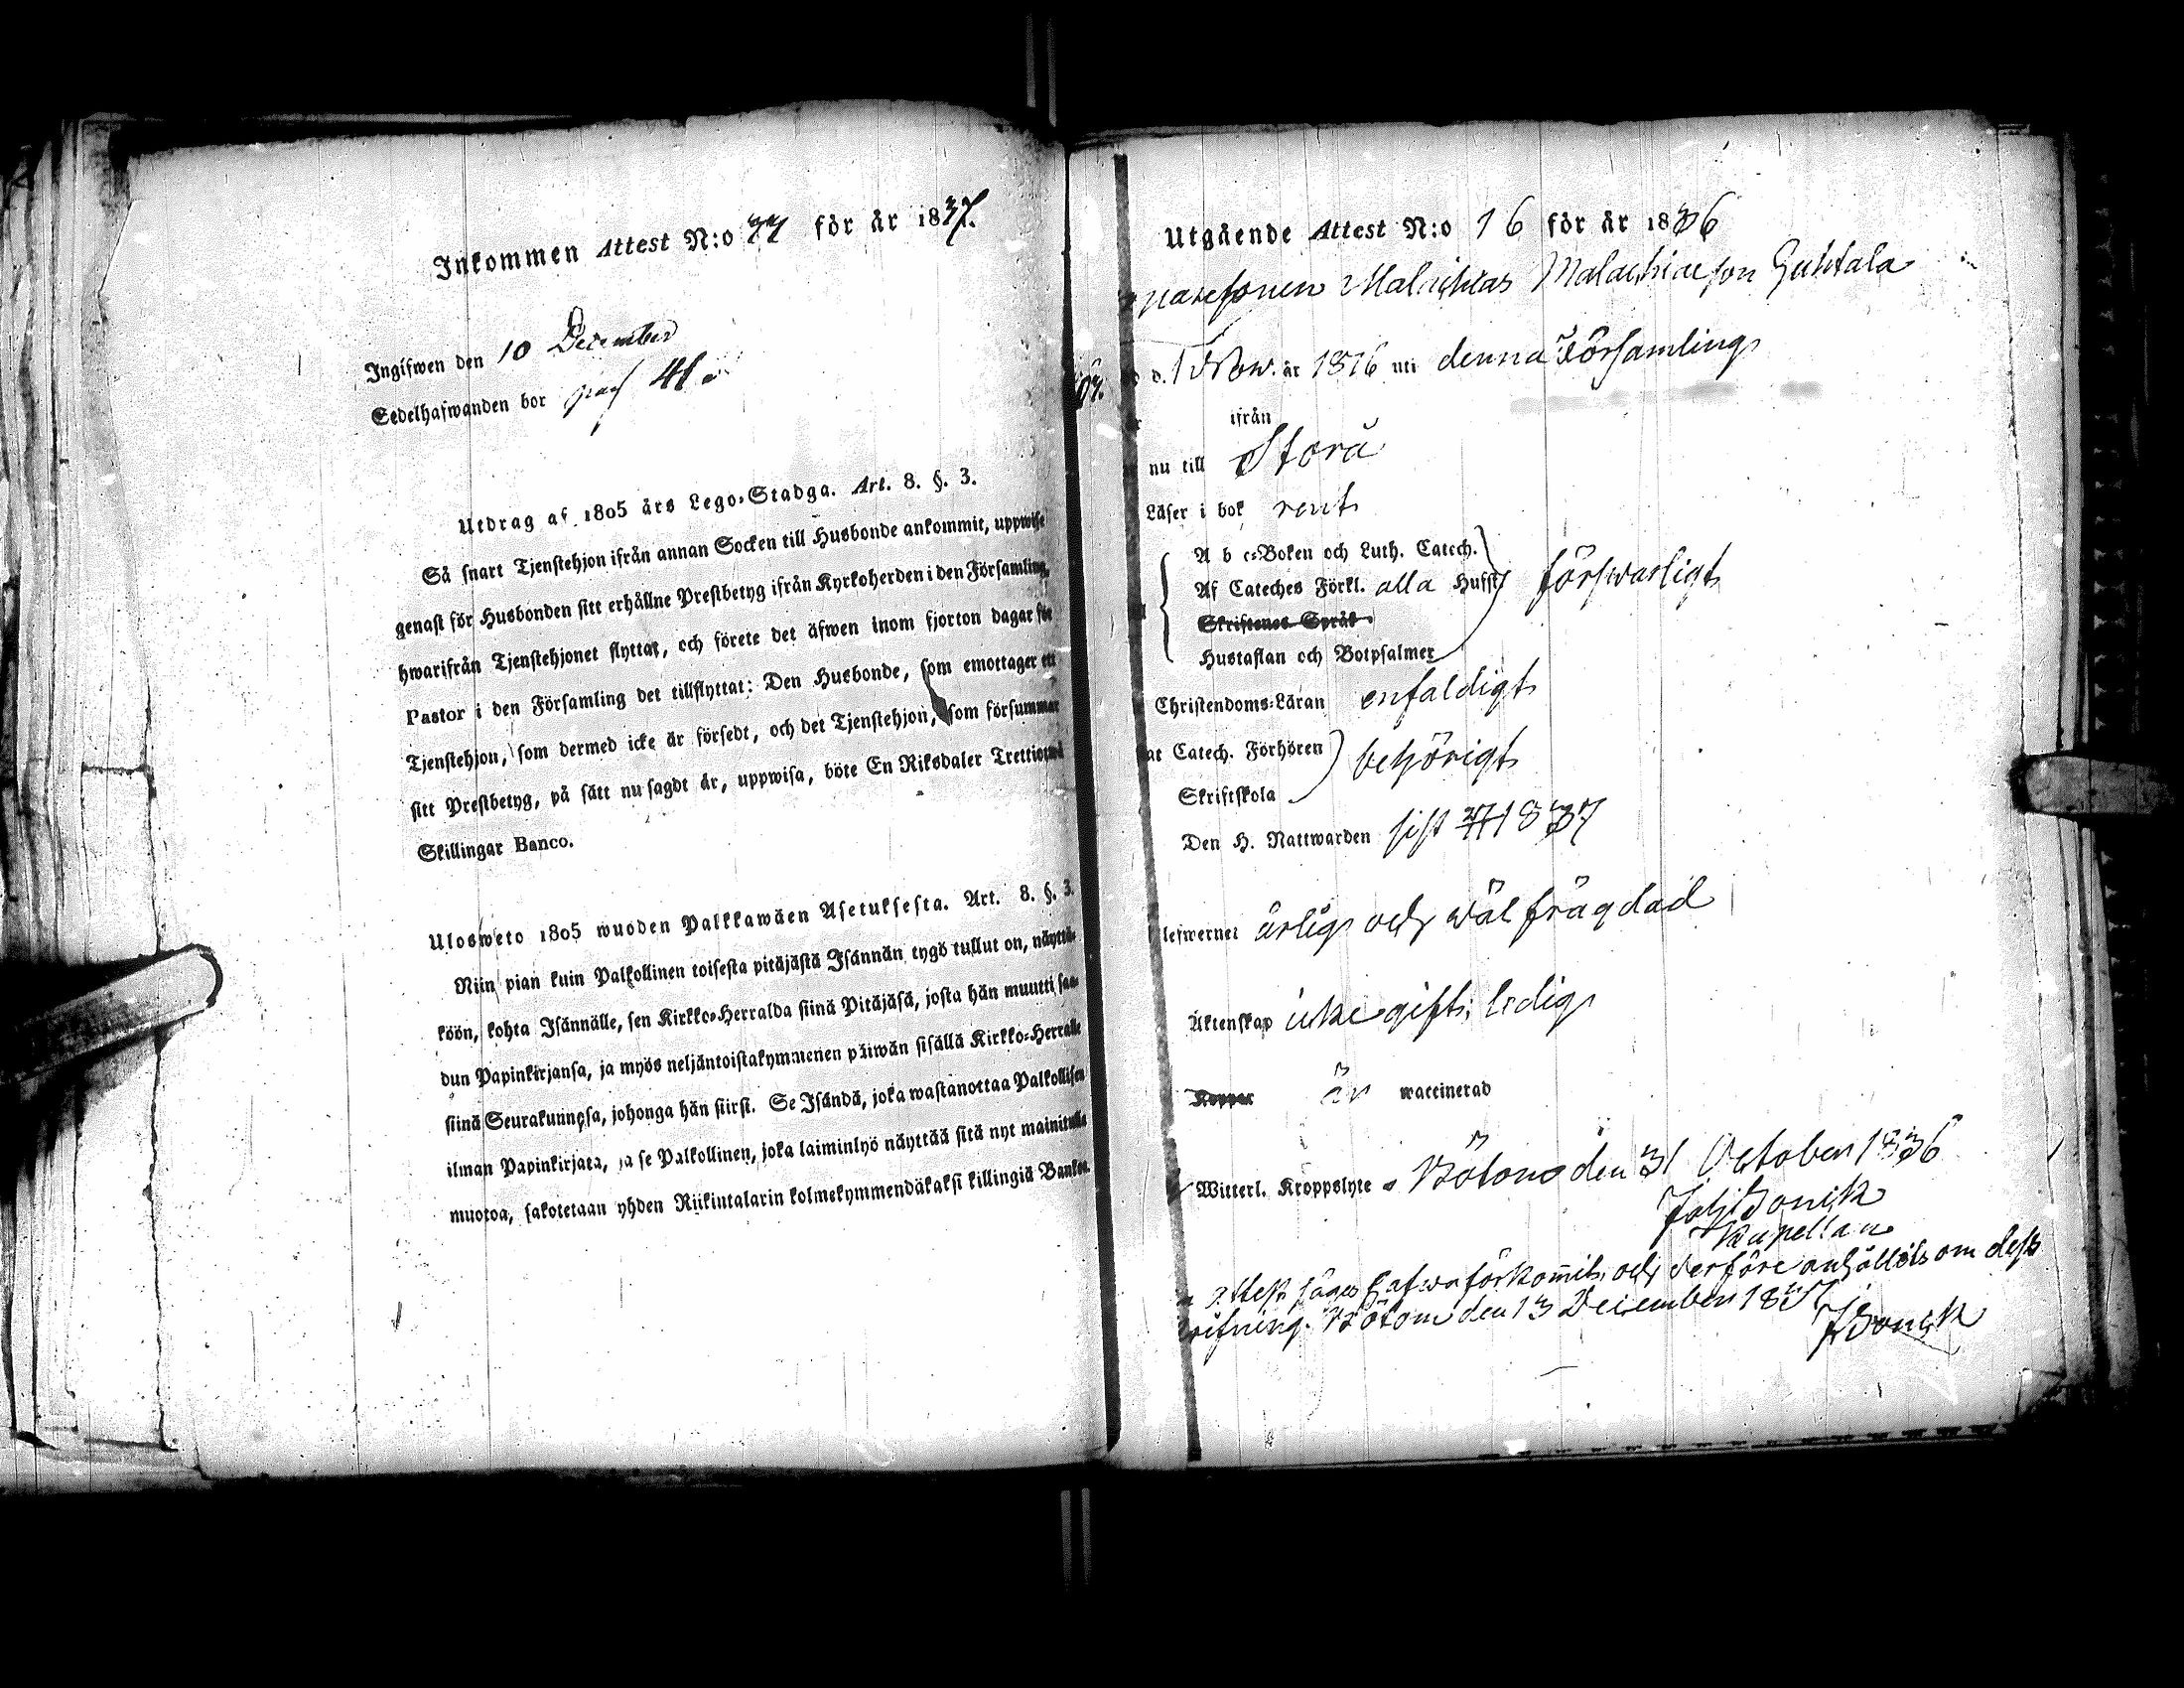 Inkommen Attest N:o 77 för år 1837.
Ingifwen den 10 December
Sedelhafwanden bor pag 41.
Utdrag af 1805 års Lego-Stadga. Art. 8. §. 3.
Så snart Tjenstehjon ifrån annan Socken till Husbonde ankommit, uppwise
genast för Husbonden sitt erhållne Prestbetyg ifrån Kyrkoherden i den Församling,
hwarifrån Tjenstehjonet flyttat, och förete det äfwen inom fjorton dagar för
Pastor i den Församling det tillflyttat: Den Husbonde, som emottager ett
Tjenstehjon, som dermed icke är försedt, och det Tjenstehjon, som försummar
sitt Prestbetyg, på sätt nu sagdt är, uppwisa, böte En Riksdaler Trettiotwå
Skillingar Banco.
Ulosweto 1805 wuoden Palkkawäen Asetuksesta. Art. 8. §. 3.
Niin pian kuin Palkollinen toisesta pitäjästä Isännän tygö tullut on, näyttä-
köön, kohta Isännälle, sen Kirkko-Herralda siinä Pitäjäsä, josta hän muutti saa-
dun Papinkirjansa, ja myös neljäntoistakymmenen päiwän sisällä Kirkko-Herralle
siinä Seurakunnasa, johonga hän siirsi. Se Isändä, joka wastanottaa Palkollisen
ilman Papinkirjata, ja se Palkollinen, joka laiminlyö näyttää sitä nyt mainitulla
muotoa, sakotetaan yhden Riikintalarin kolmekymmendäkaksi killingiä Bankos.
Utgående Attest N:o 16 för år 1836
Malachias Malachiaeson
d. 1 Now. år 1816 uti denna Församling
ifrån
nu till Storå
Läser i bok rent
A b c-Boken och Luth. Catech.
Af Cateches Förkl. alla Hufst. förswarligt
Skriftenes Språk
Hustaflan och Botpsalmer
Christendoms-Läran enfaldigt
at Catech. Förhören behörigt
Skriftskola
Den H. Nattwarden sist 1837
lefwernet ärlig och wäl frägdad
Äktenskap icke gift; ledig
Koppor är waccinerad
Witterl. Kroppslyte Bötom den 31 October 1836
Joh Bonick
Kapellan
Attest säges hafwa förkommit och derföre anhållits om dess
Bötom den 13 December 1837
JBonick